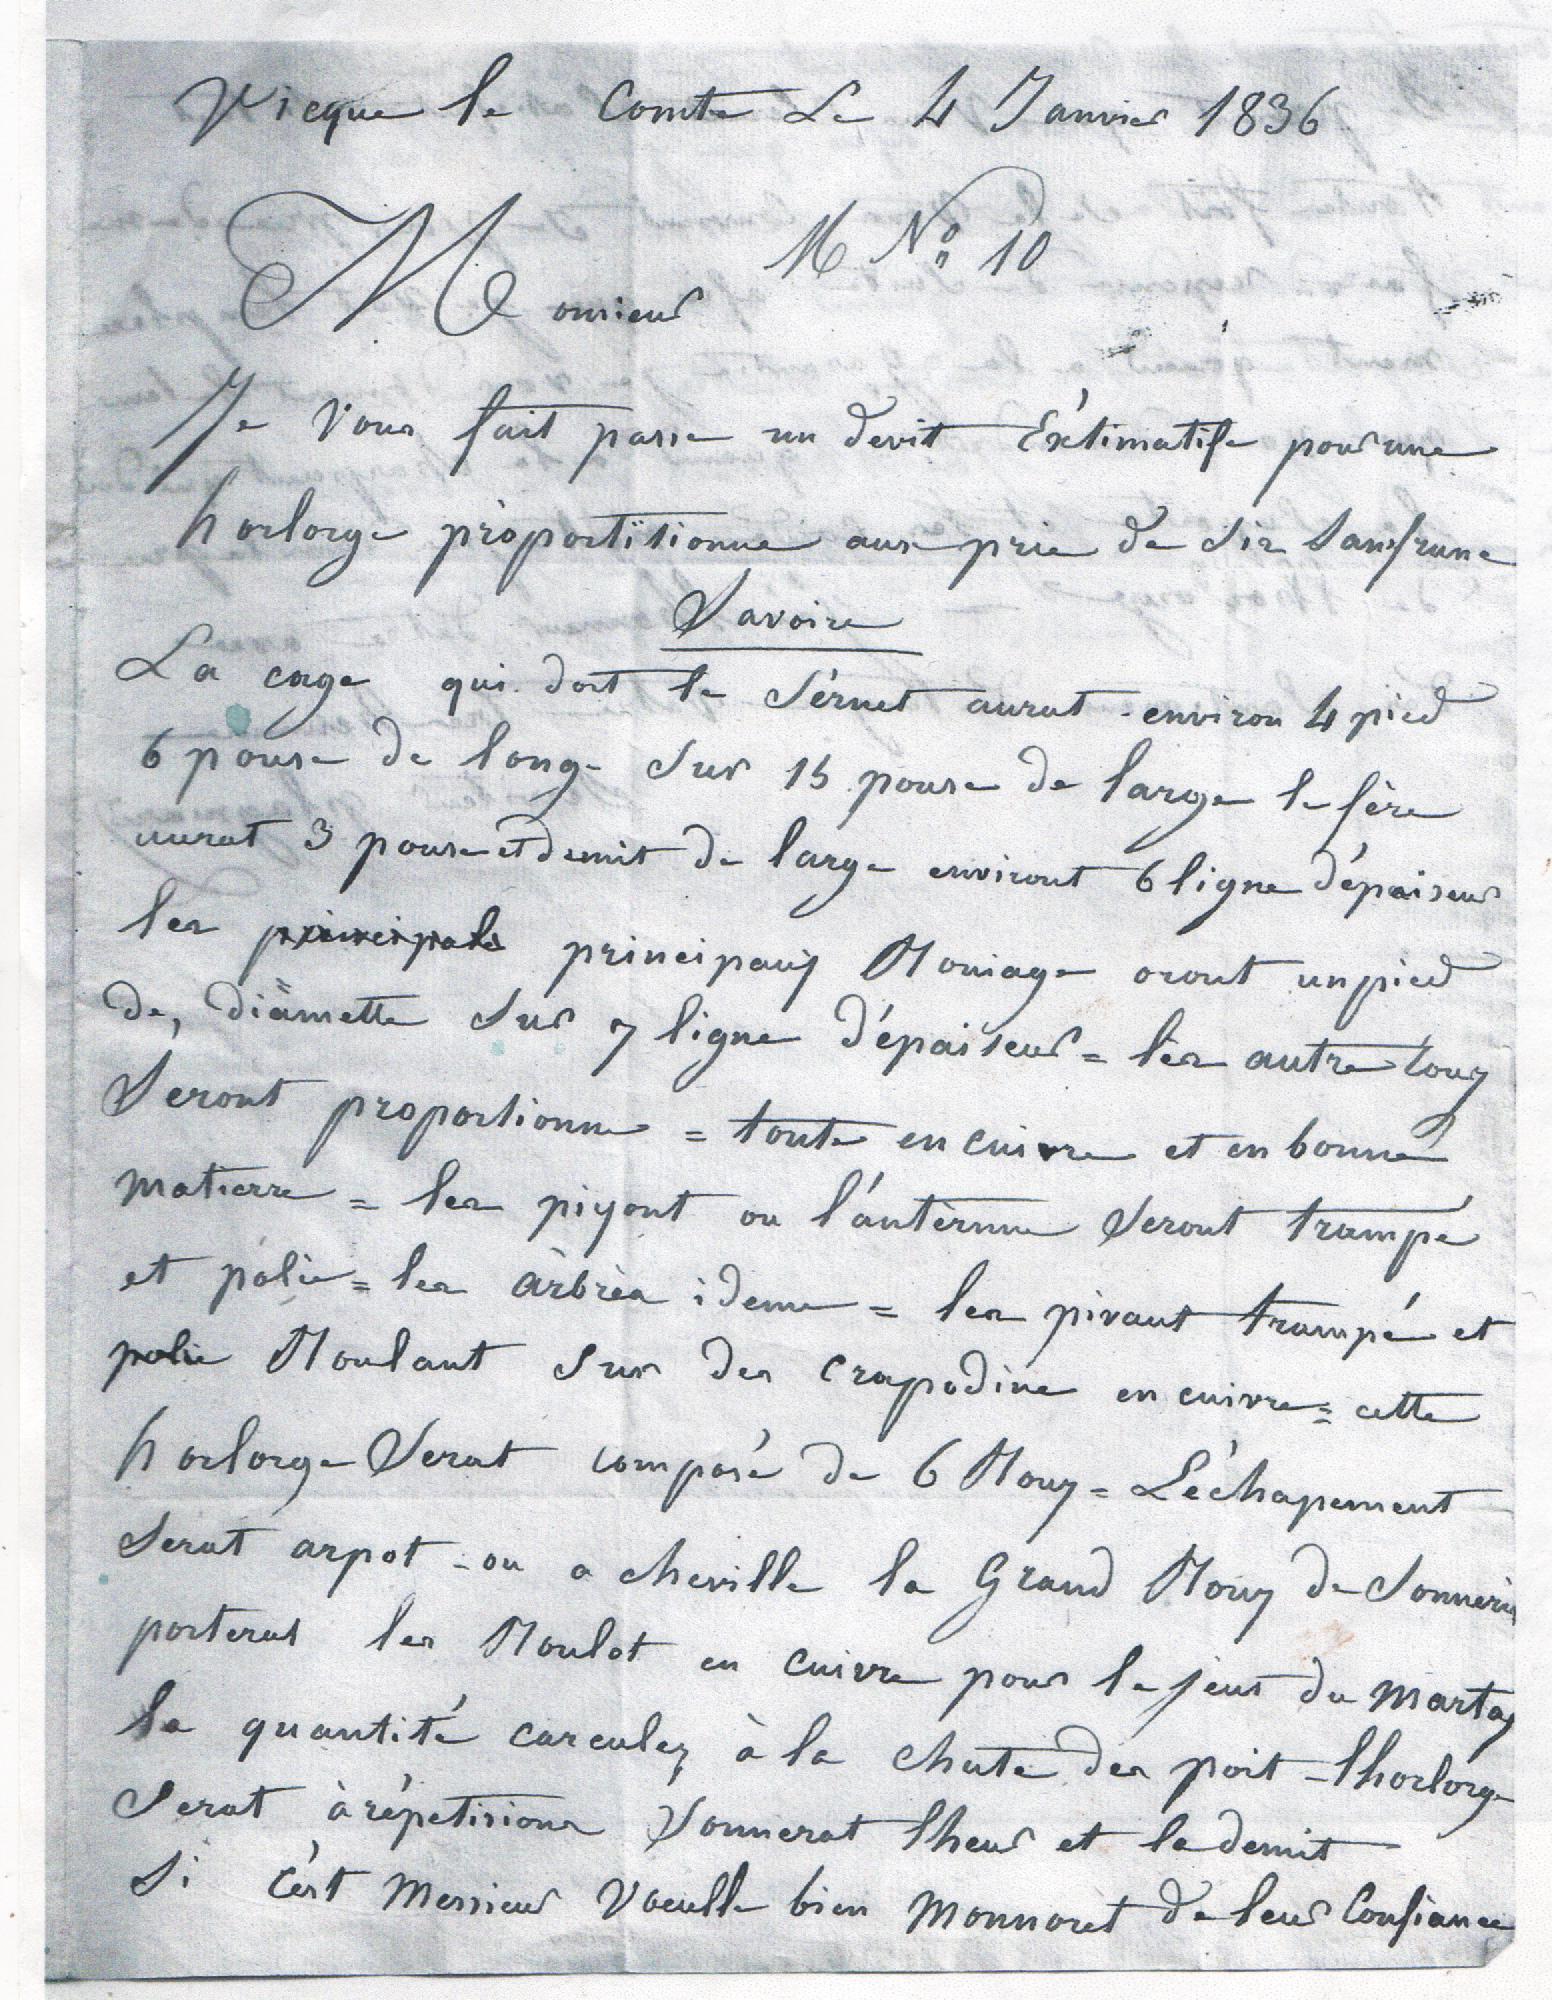 Vicque le Comte Le 4 Janvier 1836
M No 10
Monsieur
Je vous fait passe un devit Éxtimatife pour une
horlorge proportitionne aux prie de Six Sansfranc
Savoire
La cage qui doit le Sérnet aurat environ 4 pied
6 pouse de longe Sur 15 pouse de large le fère
aurat 3 pouse et demit de large environt 6 ligne d'épaiseur
les principals principauy Rouiage oront un pied
de, diamette Sur 7 ligne d'épaiseur = lès autre Rouy
Seront proportionne = toute en cuivre et en bonne
matierre = les piyont ou l'antèrnne Seront trampé
et polie = les àrbrès ideme = les pivaut trampé et
polie Roulant Sur des crapodine en cuivre = cette
horlorge Serat composé de 6 Rouy = L'échapement
Serat arpot - ou a cheville la Grand Rouy de Sonnerie
porterat les Roulet en cuivre pour le jeus du martay
la quantité carculez à la chute des poit - lhorlorge
Serat à répetisions Sonnerat lheur et la demit
Si cést Messieur Voeulle bien Monnoret de leur Confiance